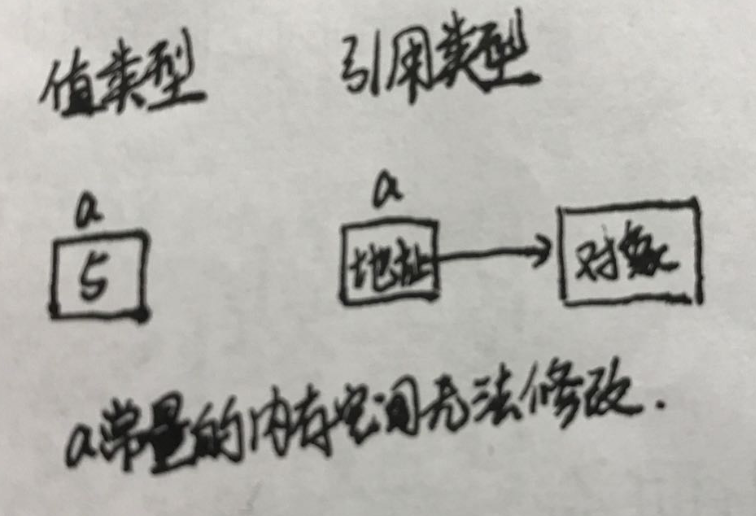 值类型 引用类型
a a
5 地址 对象
a常量的内存空间无法修改.